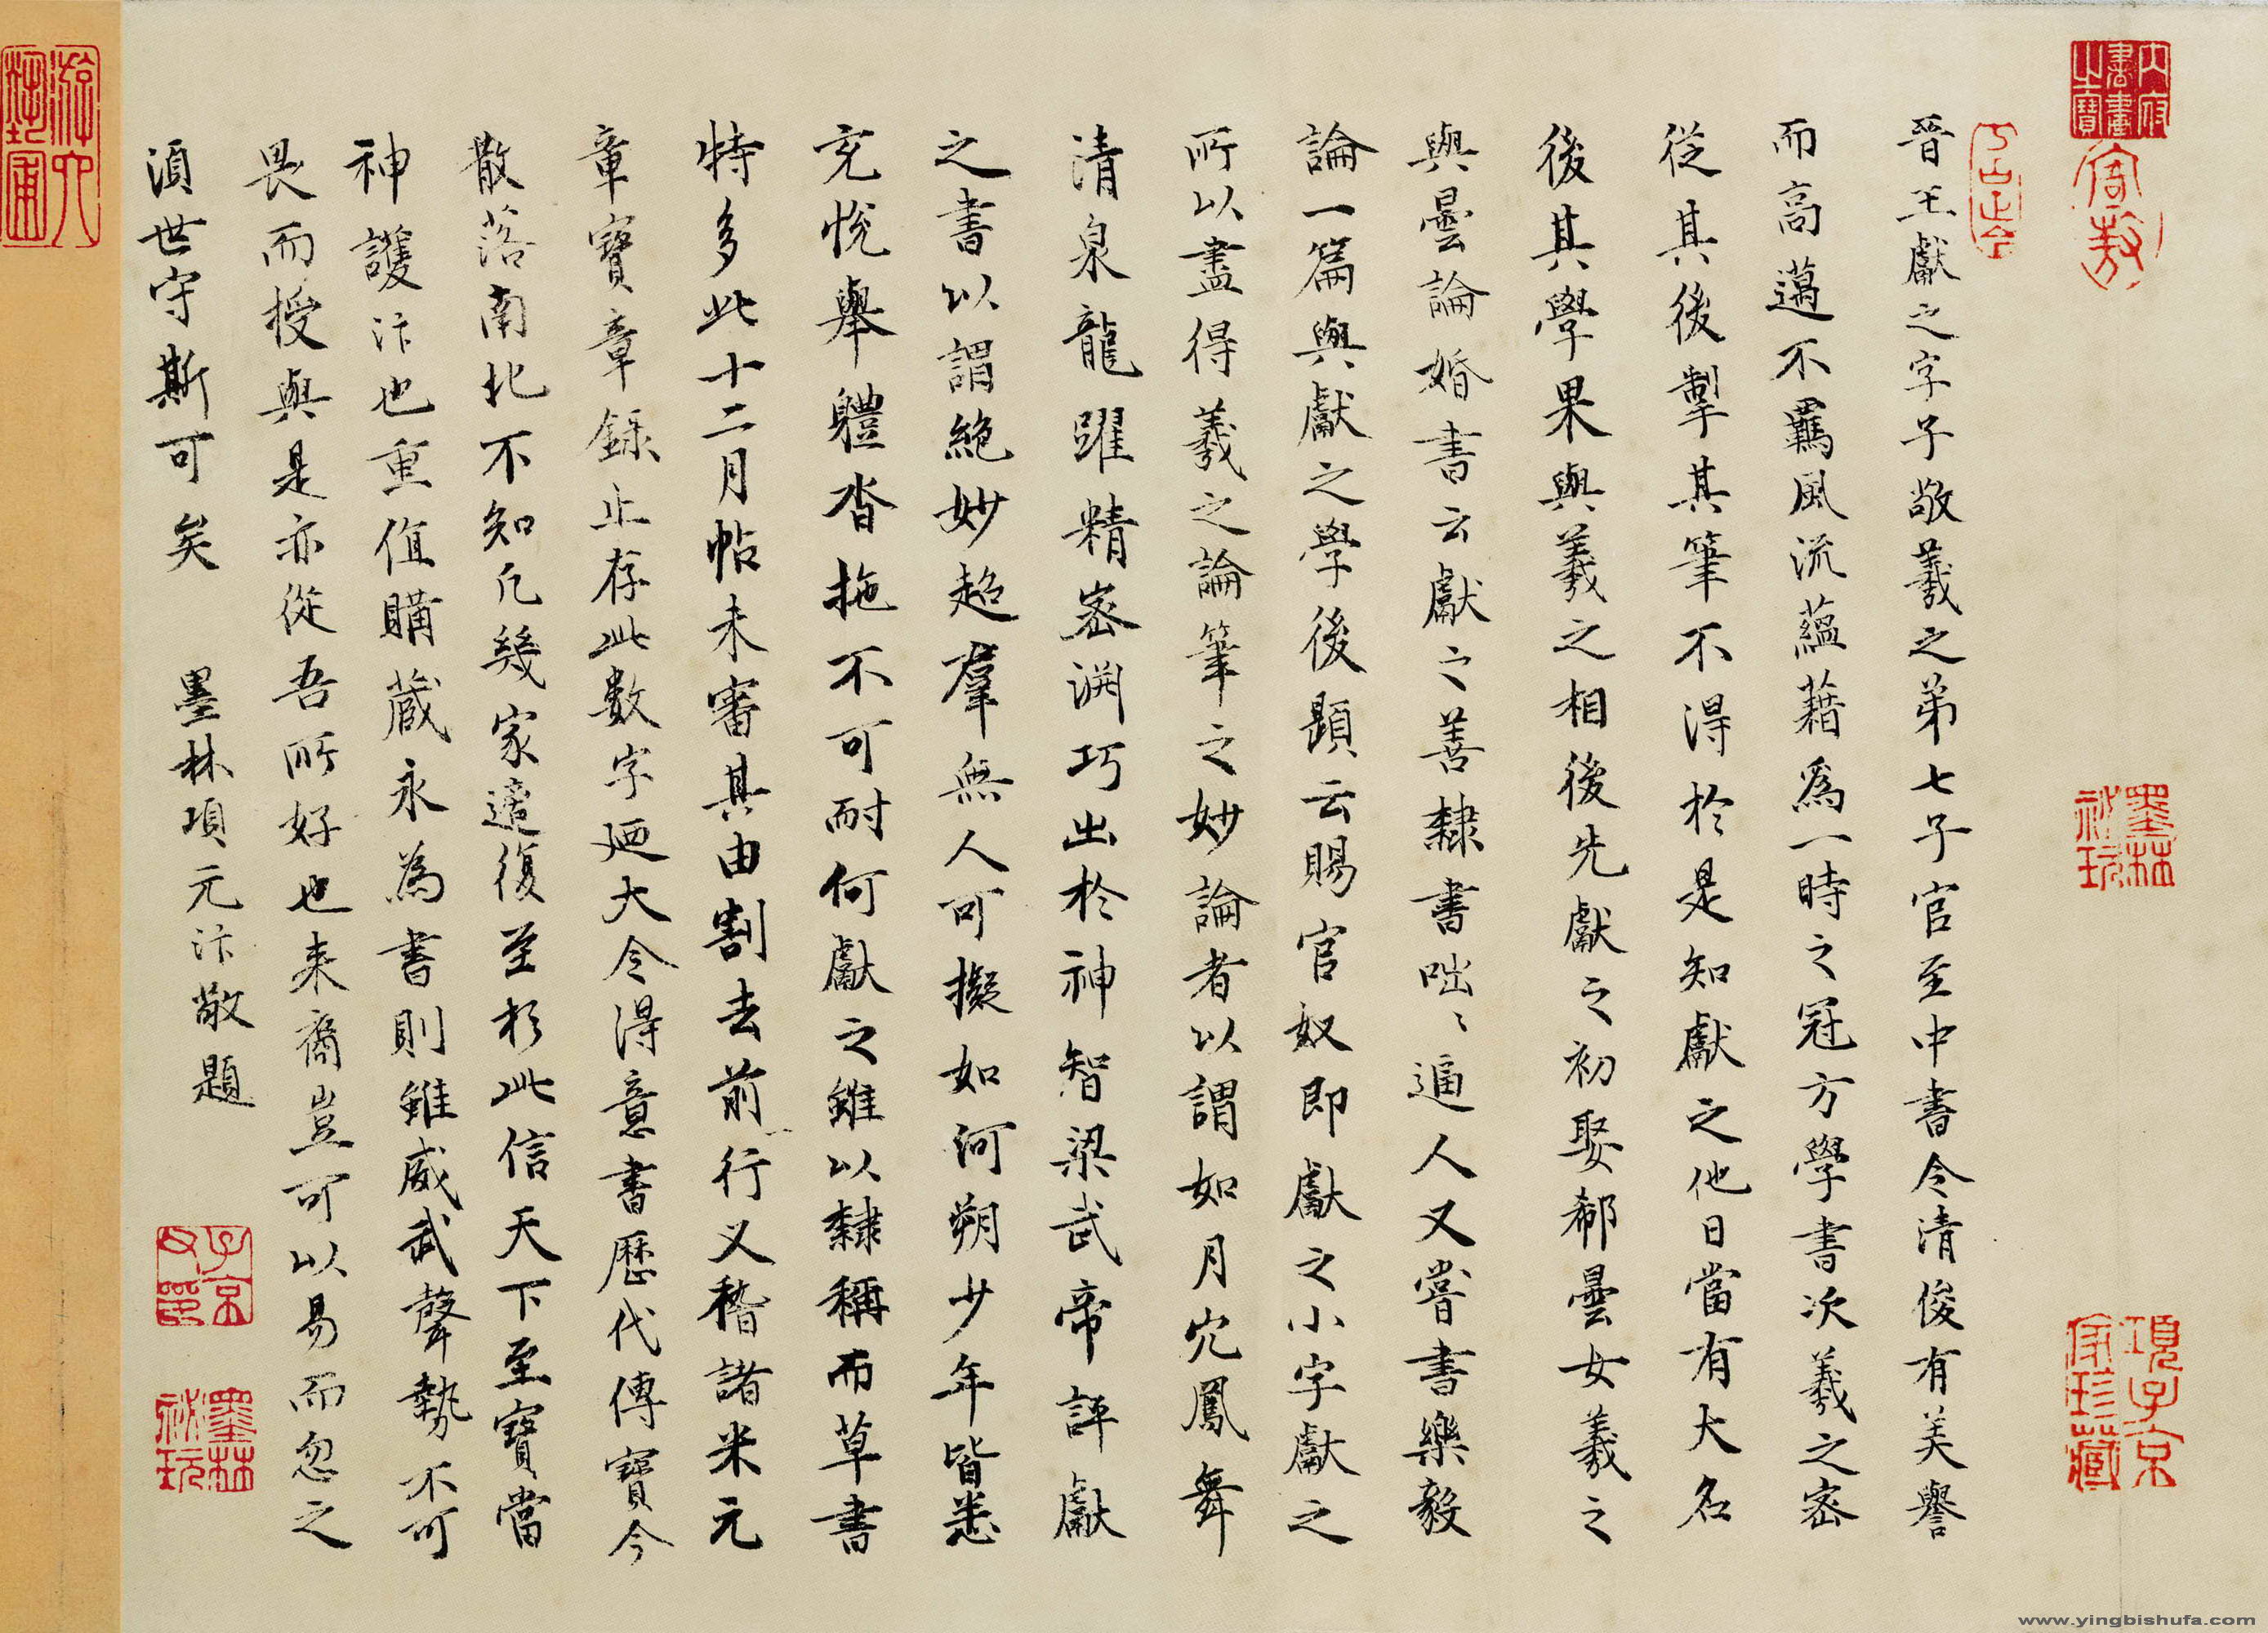 晉王獻之字子敬羲之弟七子官至中書令清俊有美譽
而高邁不羈風流蘊藉為一時之冠方學書次羲之密
從其後掣其筆不得於是知獻之他日當有大名
後其學果與羲之相後先獻之初娶郗曇女羲之
與曇論婚書云獻之善隸書咄〻逼人又嘗書樂毅
論一篇與獻之學後題云賜官奴即獻之小字獻之
所以盡得羲之論筆之妙論者以謂如月穴鳳舞
清泉龍躍精密淵巧出於神智梁武帝評獻
之書以謂絕妙超羣無人可擬如河朔少年皆悉
充悅舉體沓拖不可耐何獻之雖以隸稱而草書
特多此十二月帖未審其由割去前行又稽諸米元
章寶章錄止存此數字廼大令得意書歷代傳寶今
散落南北不知凡幾家造復至於此信天下至寶當
神護汴也重值購藏永為書則雖威武聲勢不可
畏而授與是亦從吾所好也来裔豈可以易而忽之
須世守斯可矣 墨林項元汴敬題
內府書畫之寶
墨林祕玩
項子京家珍藏
子京父印
墨林祕玩
www.yingbishufa.com